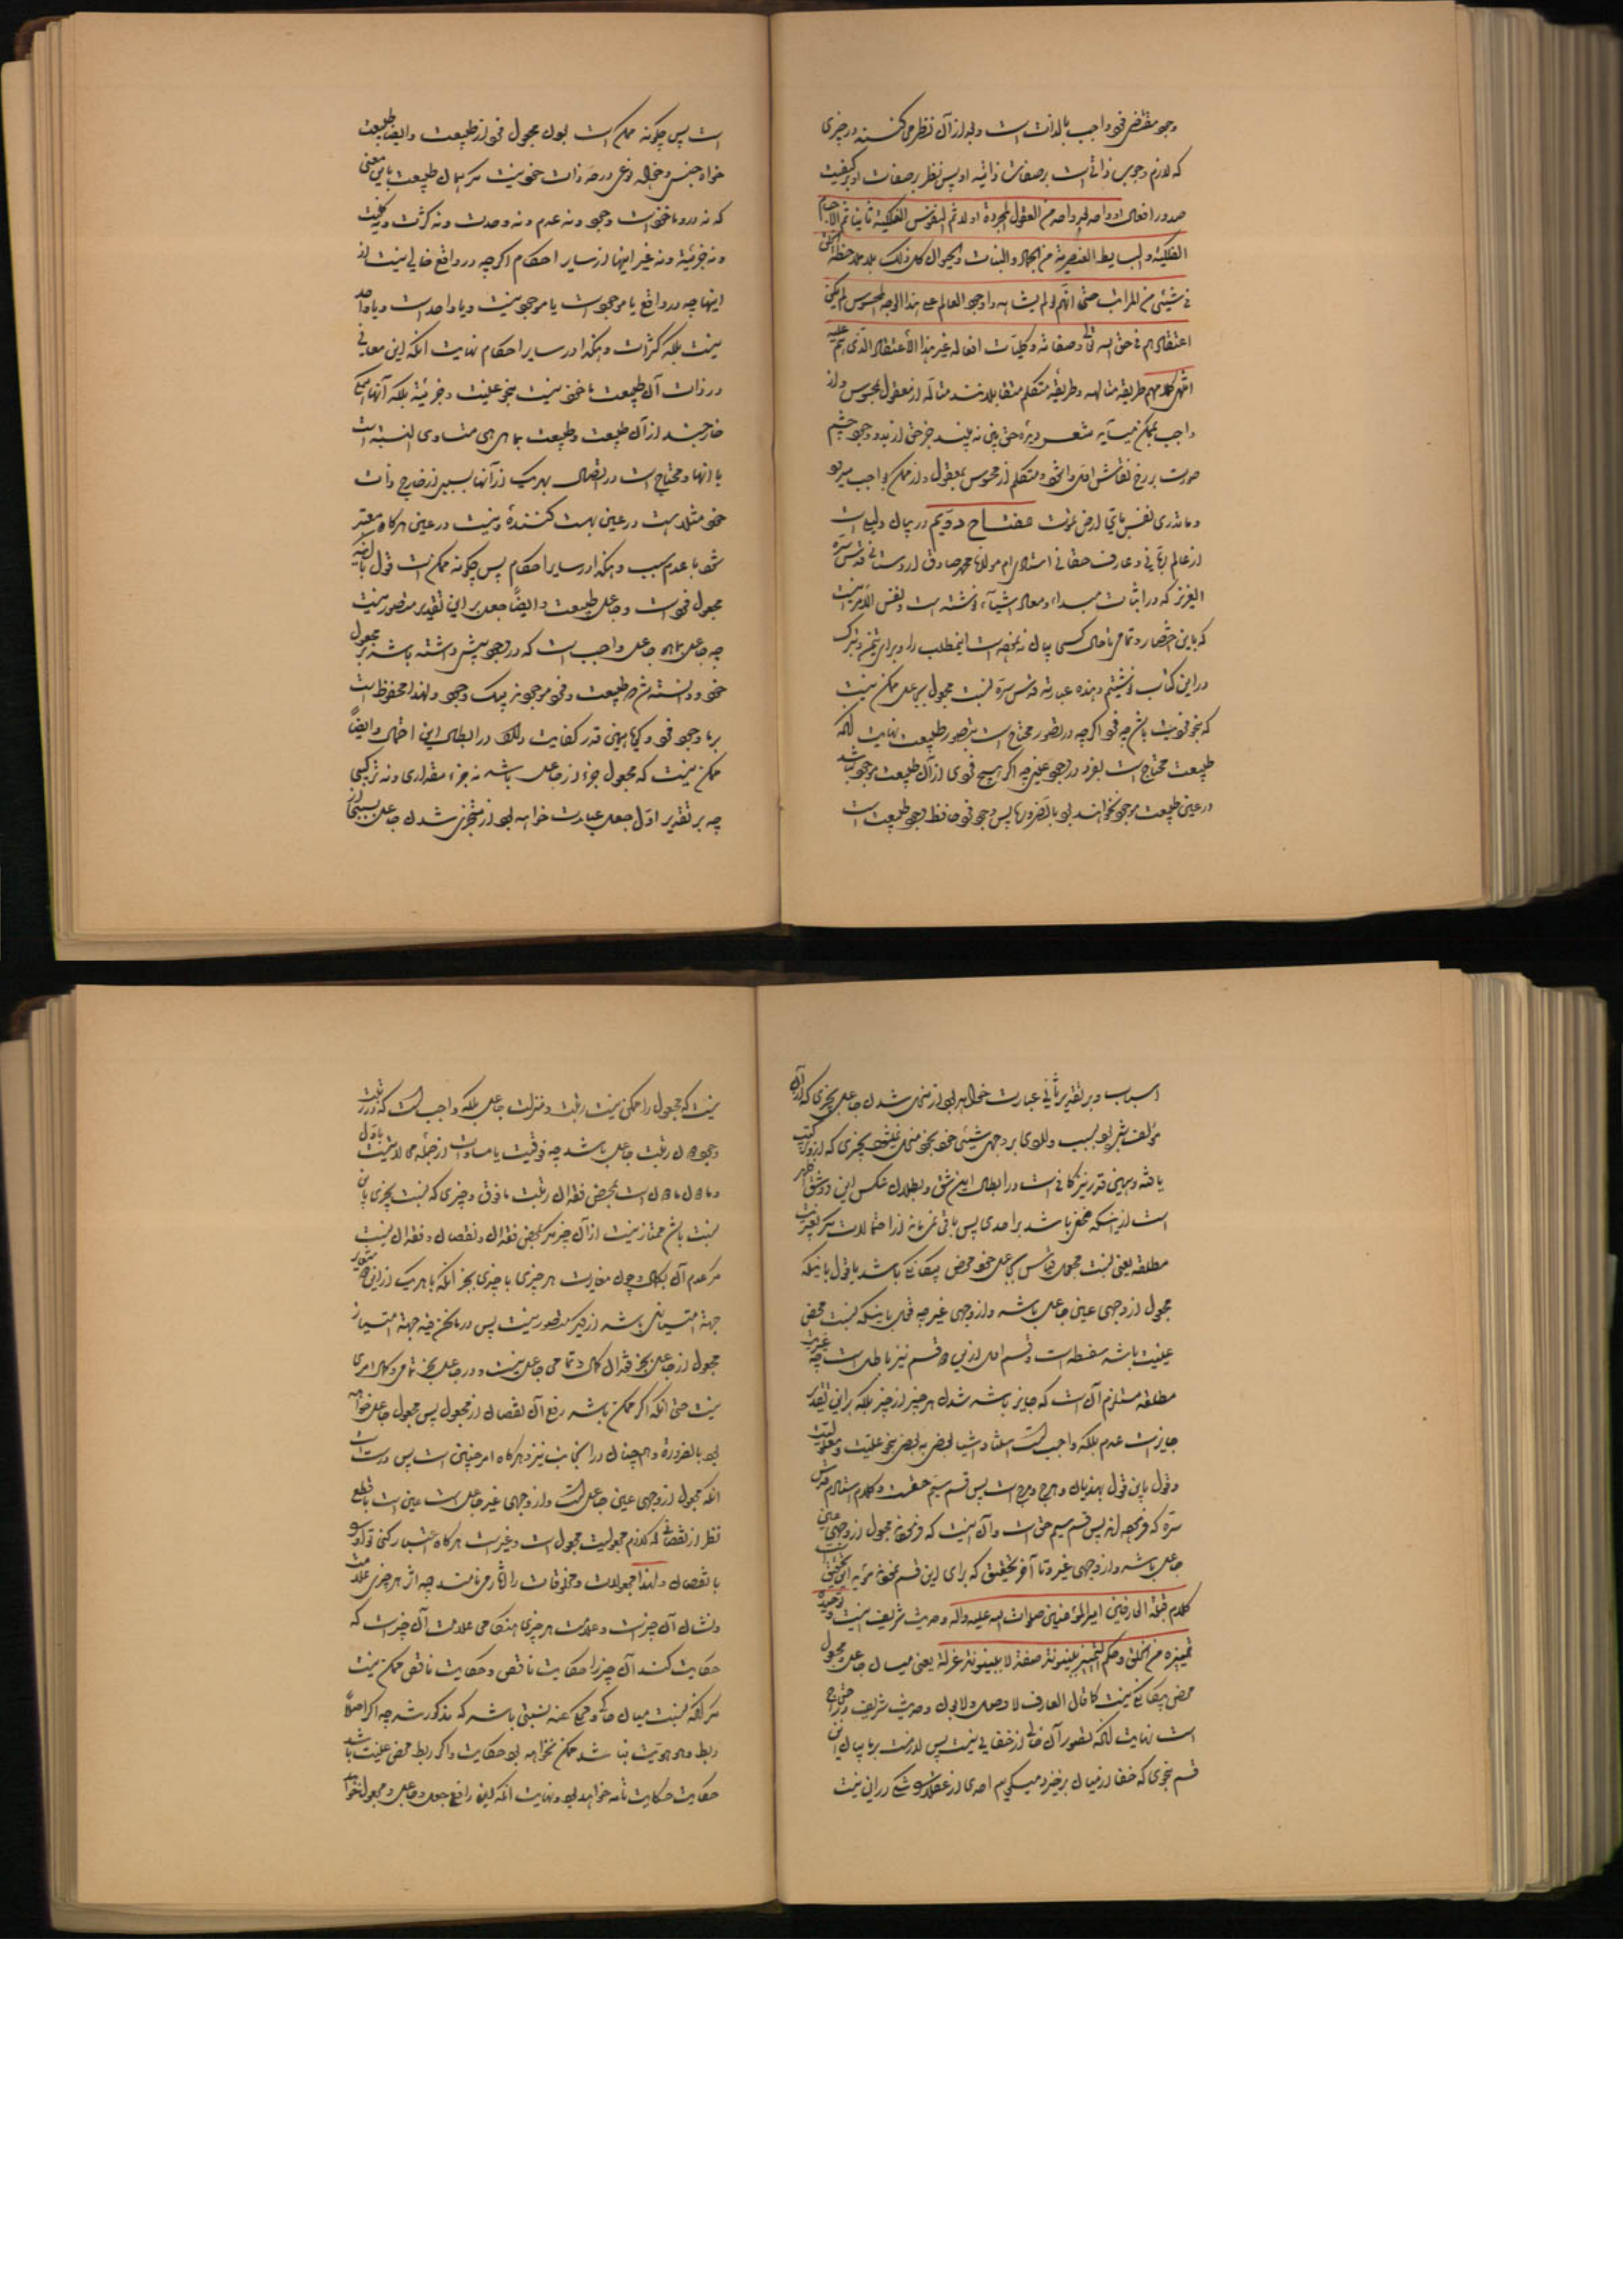 وجود مقتضی فهو واجب بالذات است و بعد از آن نظر می‌کنند در چیزی
که لازم وجوب ذاتی است بر صفات ذاتیه او پس نظر بر صفات او بر کیفیت
صدور افعال او واحد بعد واحد من العقول المجردة اولا ثم النفوس الفلکیة ثانیا ثم الاجسام
الفلکیة و البسایط العنصریة من الجماد و النبات و الحیوان کل ذلک بلا ملاحظة
فی شیئی من المراتب حتی انهم لو لم یشاهدوا وجود العالم علی هذا الوجه المحسوس لم یکن
اعتقادهم فی حق الله تعالی و صفاته و کلیات افعاله غیر هذا الأعتقاد الذی هم علیه
انتهی کلامهم طریقه متالهه و طریقه متکلم متقابلانند متاله از معقول بمحسوس و از
واجب بممکن میآید شعر دیده حق بین نه بیند جز حق از بدو وجود چشم
صورت بر رخ نقاش افتد و متکلم از محسوس بمعقول و از ممکن بواجب میرود
و ما تدری نفس بای ارض تموت مفتاح دویم در بیان دلیل است
از عالم ربانی و عارف حقانی استادی ام مولانا محمد صادق اردستانی قدس سره
العزیز که در اثبات مبداء و معاد اشیاء نوشته است و نفس الامر نیست
که باین اختصار و تمامی تا حال کسی بیان ننموده است اینمطلب را و برای تیمن و تبرک
در این کتاب نوشتیم و هذه عبارته قدس سره نسبت مجعول بجاعل ممکن نیست
که بنحو فردیت باشد چه فرد اگر چه در تصور محتاج است بتصور طبیعت نهایت آنکه
طبیعت محتاج است بفرد در وجود عینی چه اگر هیچ فردی از آن طبیعت موجود نباشد
در عین طبیعت موجود نخواهند بود بالضروره پس وجود فرد حافظ وجود طبیعت است
است پس چگونه ممکن است بودن مجعول فرد از طبیعت و ایضا طبیعت
خواه جنس و خواه نوعی در حد ذات خود نیست مگر همان طبیعت باین معنی
که نه در او ماخوذ است وجود و نه عدم و نه وحدت و نه کثرت و نه کلیت
و نه جزئیة و نه غیر اینها از سایر احکام اگر چه در واقع خالی نیست از
اینها چه در واقع یا موجود است یا موجود نیست و یا واحد است و یا واحد
نیست بلکه کثرات و هکذا در سایر احکام نهایت آنکه این معانی
در ذات آن طبیعت ماخوذ نیست بنحو عینیت و جزئیة بلکه آنها همگی
خارجند از آن طبیعت و طبیعت بما هی هی متساوی النسبة است
با آنها و محتاج است در اتصاف بهر یک از آنها بسببی از خارج ذات
شود با عدم سبب و هکذا در سایر احکام پس چگونه ممکن است قول بآنکه
مجعول فرد است و جاعل طبیعت و ایضاً جعل بر این تقدیر متصور نیست
چه جاعل بما هو جاعل واجب است که در وجود پیش داشته باشد بر مجعول
خود و دانسته شد که طبیعت و فرد موجودند بیک وجود و لهذا محفوظ است
بما وجود فرد و گویا همین قدر کفایت دارد در ابطال این احتمال و ایضاً
ممکن نیست که مجعول جزء از جاعل باشد نه جزء مقداری و نه ترکیبی
چه بر تقدیر اول جعل عبارت خواهد بود از متجزی شدن جاعل بسببی از
اسباب و بر تقدیر ثانی عبارت خواهد بود از منحل شدن جاعل بچیزی که از آن
مؤلف شده بود بسبب
یافته و همین قدر نیز کافی است در ابطال این شق و بطلان عکس این دو شق ظاهر
است از اینکه مخفی باشد بر احدی پس باقی نمی‌ماند از احتمالات مگر غیریت
مطلقه یعنی نسبت مجعول قیاس بجاعل خود محض بیگانگی باشد یا قول باینکه
مجعول از وجهی عین جاعل باشد و از وجهی غیر چه قول باینکه نسبت محض
عینیت باشد سفسطه است و قسم اول از این دو قسم نیز باطل است چه غیریت
مطلقه مستلزم آن است که جایز باشد شدن هر چیز از چیز بلکه بر این تقدیر
جایز است عدم بلکه واجب است
و قول باین قول بهذیان و هرج و مرج است پس قسم سیم حقست و کلام استادم قدس
سره که فرموده‌اند پس قسم سیم حق است و آن اینست که فرموده مجعول از وجهی عین
جاعل باشد و از وجهی غیر و تا آخر تحقیق که برای این قسم نموده مؤید این تحقیق است
کلام قبلة العارفین امیرالمؤمنین صلوات الله علیه و اله و حدیث شریف اینست توحیده
تمییزه من الخلق و حکم التمییز بینونة صفة لا بینونة عزلة یعنی میان جاعل و مجعول
محض بیگانگی نیست کما قال العارف لا وصل و لا بون و حدیث شریف
است نهایت آنکه تصور آن خالی از خفایی نیست پس لازمست بر ما بیان این
قسم بنحوی که خفا از میان برخیزد میگوئیم احدی از عقلا را شکی در این نیست
نیست که مجعول را ممکن نیست رتبت و منزلت جاعل بلکه واجب است که در رتبت
وجود دون رتبت جاعل باشد چه فوقیت یا مساوات از جمله محالاتست
و مادون مادون است بمحض فقدان رتبت مافوق و چیزی که نسبت بچیزی باین
نسبت باشد ممتاز نیست از آن چیز مگر بمحض فقدان و نقصان و فقدان نیست
مگر عدم آن کمال و چون مغایرت هر چیزی با چیزی بجز آنکه با هر یک از این دو متغایر
جهة امتیازی باشد از دیگری متصور نیست پس در ما نحن فیه جهة امتیاز
مجعول از جاعل بجز فقدان کمال و تمامی جاعل نیست و در جاعل بجز تمامی و کمال امری
نیست حتی آنکه اگر ممکن باشد رفع آن نقصان از مجعول پس مجعول جاعل خواهد
بود بالضرورة و همچنان در اینجانب نیز و هرگاه امر چنین است پس درست است
آنکه مجعول از وجهی عین جاعل است و از وجهی غیر جاعل است عین است با قطع
نظر از نقصانی که لازم مجعولیت مجعول است و غیر است هرگاه اعتبار کنی تو او را
با نقصان و لهذا مجعولات و مخلوقات را آثار می‌نامند چه اثر هر چیزی علامت
و نشان آن چیز است و علامت هر چیزی هنگامی علامت آن چیز است که
حکایت کند آن چیز را حکایت ناقص و حکایت ناقص ممکن نیست
مگر آنکه نسبت میان حاکی و محکی عنه نسبتی باشد که مذکور شد چه اگر اصلاً
ربط و هوهویت نباشد ممکن نخواهد بود حکایت و اگر ربط محض عینیت باشد
حکایت حکایت تامه خواهد بود و نهایت آنکه این رافع جعل و جاعل و مجعول خواهد